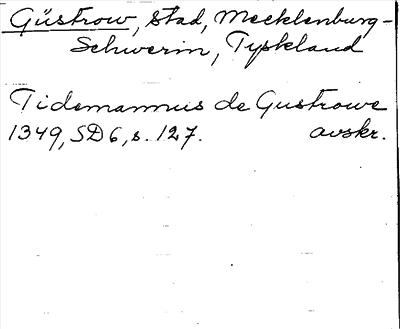 Güstrow, stad, Mecklenburg-
Schwerin, Tyskland
Tidemannus de Gustrowe
1349, SD6, s. 127. avskr.